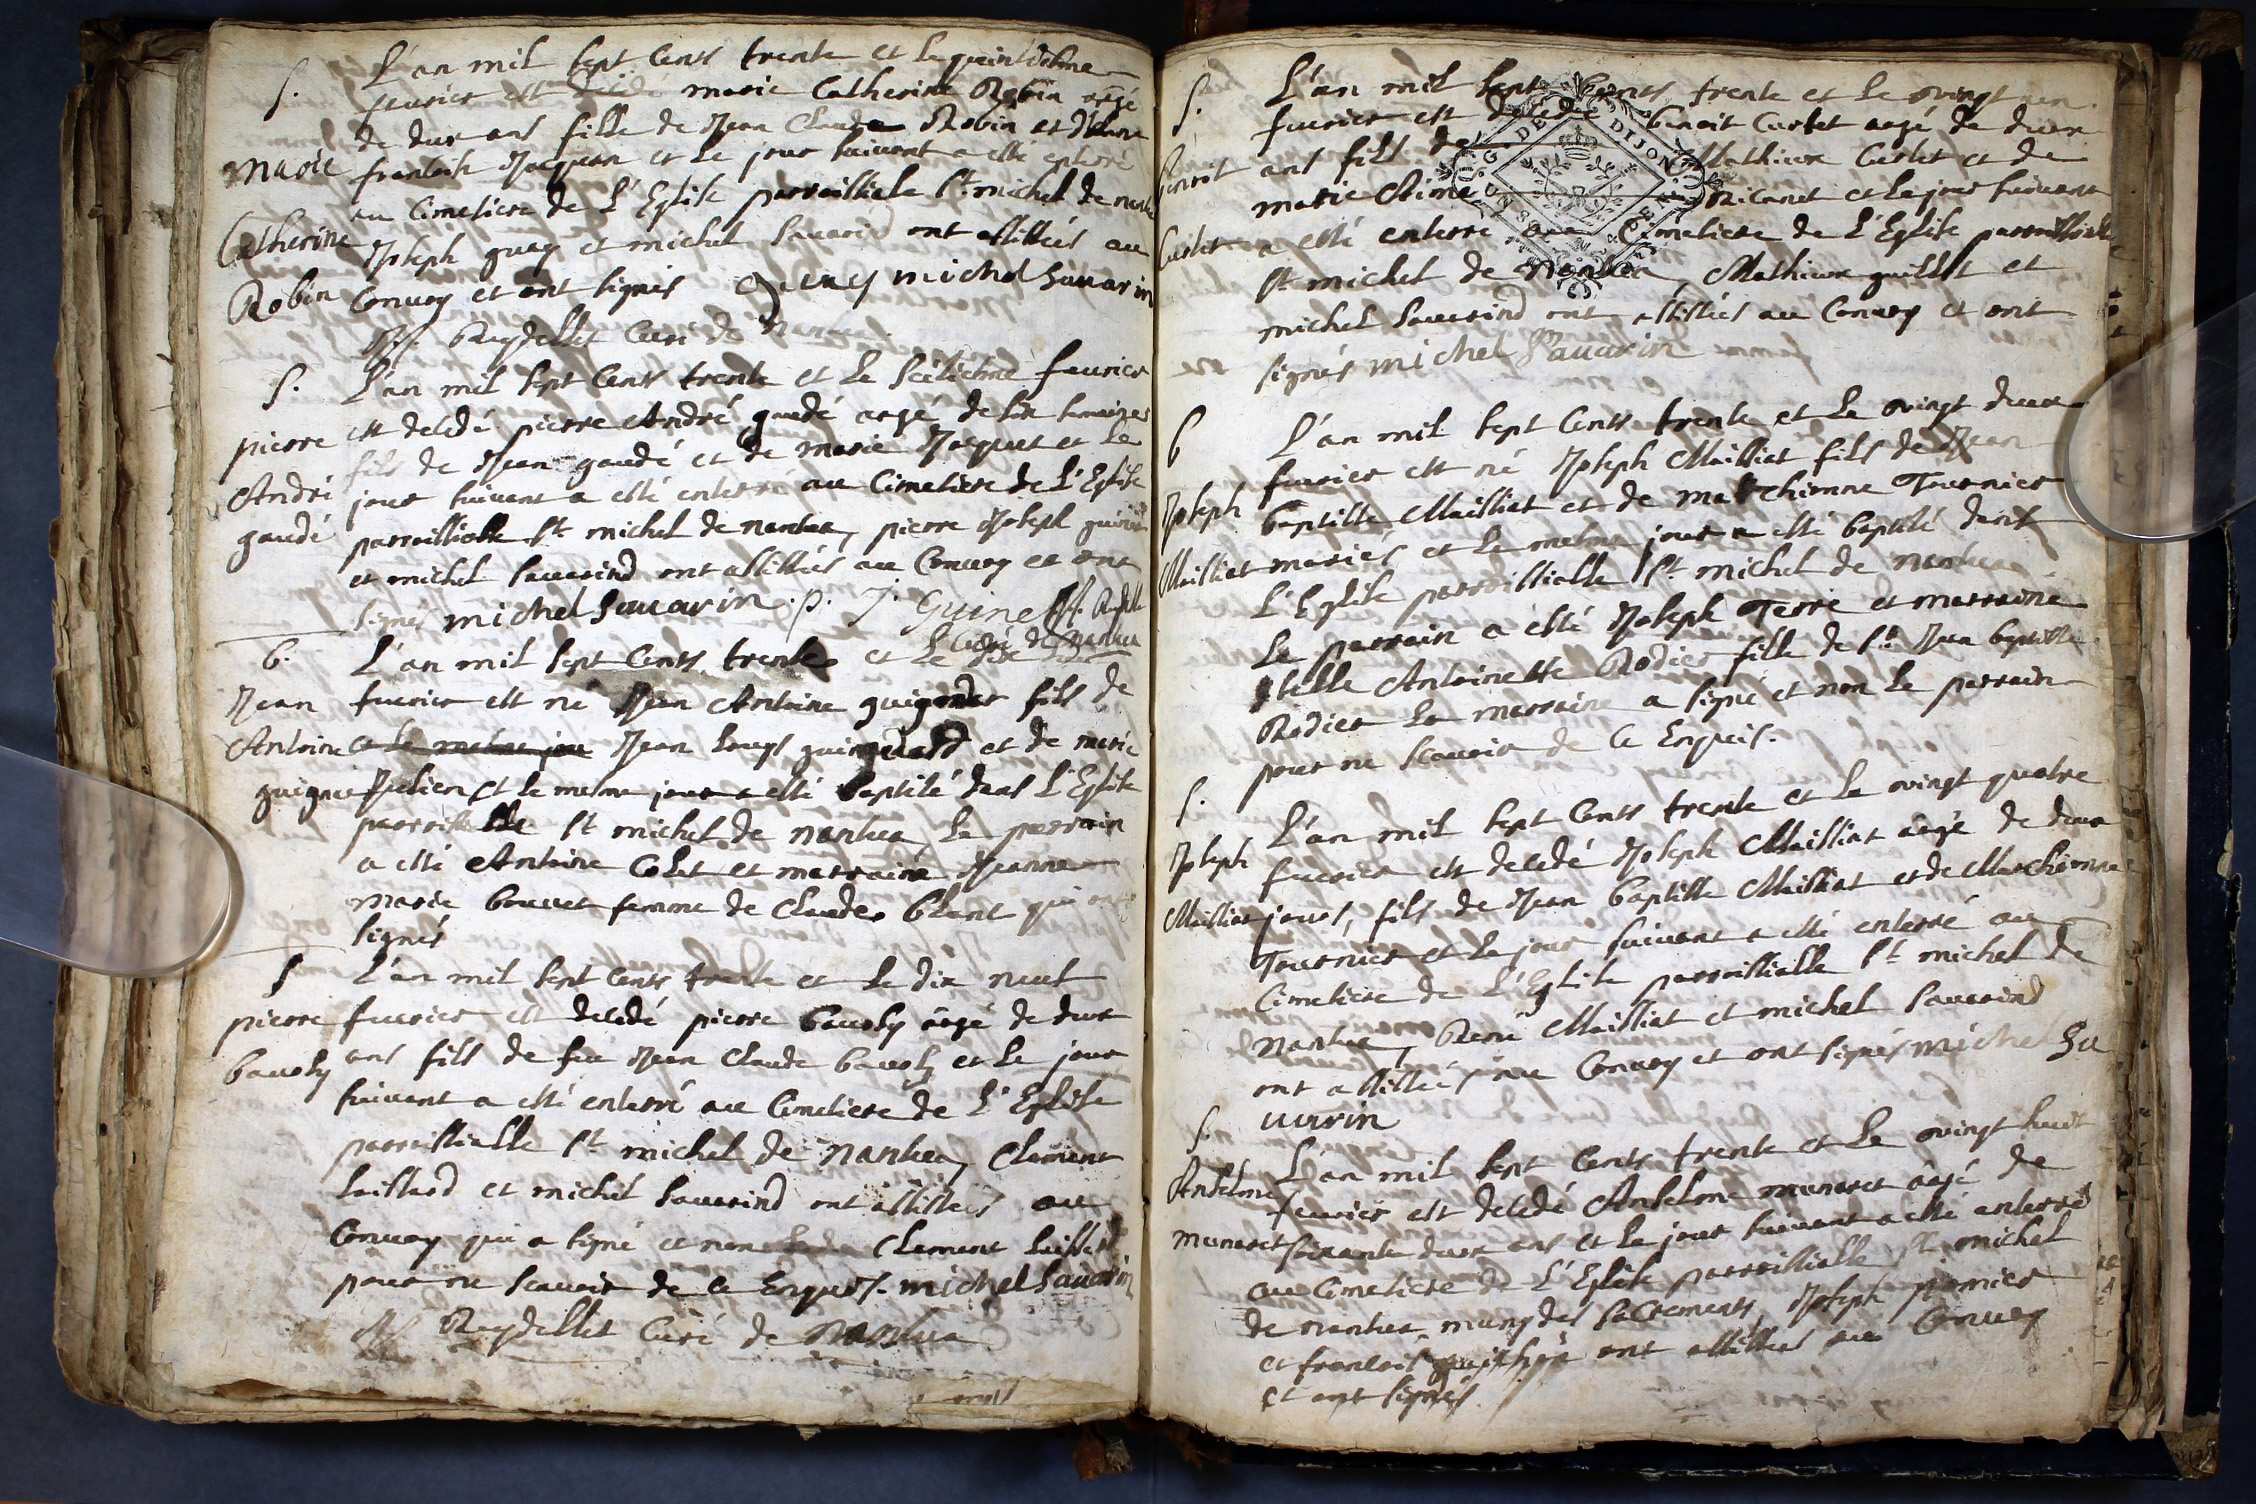 S.
Marie
Catherine
Robin
L'an mil sept cents trente et le quinsiesme
feurier est decedé marie Catherine Robin aagé
de dux ans fille de Jean Claude Robin et d'
francoise Jacquem et le jour suivant a esté enterré
au Cimetiere de L'Eglise parroissielle St michel de nantua
Joseph guay et michel Sauarind ont assistés au
Convoy et ont signés Guay michel Sauarin
Reydellet Curé de Nantua.
S.
pierre
André
gaudé
L'an mil sept Cents trente et le Séziéme feurier
est decedé pierre André gaudé aagé de six semaines
fils de Jean gaudé et de marie Jacquet et le
jour suivant a esté enterré au Cimetiere de L'Eglise
parroissialle St michel de nantua, pierre Joseph
et michel Sauarind ont assistés au Convoy et ont
signés michel Sauarin . P. J. Guinet
Curé de Nantua
b.
Jean
Antoine
L'an mil sept Cents trente et Le dix
feurier est né Jean Antoine fils de
et Le mesme jour Jean Louys et de marie
Julien et le mesme jour a esté baptisé dans L'Eglise
parroissialle St michel de nantua, Le parrain
a esté Antoine Colet et marraine Jeanne
marie bouuet femme de Claude blanc qui ont
signés
S
pierre
bauoly
L'an mil sept Cents trente et Le dix neuf
feurier est decedé pierre bauoly aagé de dux
ans fils de feu Jean Claude bauoly et Le jour
suivant a esté enterré au Cimetiere de L'Eglise
parroissialle St michel de nantua, Clement
Laissard et michel Sauarind ont assistés au
Convoy qui a signé et non Clement Laissard
pour ne scauoir de ce Enquis. michel Sauarin
Reydellet Curé de Nantua
S.
Benoit
Curtet
L'an mil sept Cents trente et Le vingt un
feurier est decedé benoit Curtet aagé de deux
ans fils de Mathieu Curtet et de
marie Aimé Ricanet et Le jour suivant
a esté enterré au Cimetiere de L'Eglise parroissialle
St michel de Nantua, Mathieu guillot et
michel Sauarind ont assistés au Convoy et ont
signés michel Sauarin
b
Joseph
Mailliat
L'an mil sept Cents trente et Le vingt deux
feurier est né Joseph Mailliat fils de Jean
baptiste Mailliat et de marchienne Tournier
mariés et Le mesme jour a esté baptisé dans
L'Eglise parroissialle St michel de nantua
Le parrain a esté Joseph Terré et marraine
Antoinette Rodier fille de Sr Jean baptiste
Rodier La marraine a signé et non Le parrain
pour ne scauoir de ce Enquis.
S.
Joseph
Mailliat
L'an mil sept Cents trente et Le vingt quatre
feurier est decedé Joseph Mailliat aagé de deux
jours, fils de Jean baptiste Mailliat et de Marchienne
Tournier et Le jour suivant a esté enterré au
Cimetiere de L'Eglise parroissialle St michel de
Nantua, René Mailliat et michel Sauarind
ont assistés au Convoy et ont signés michel Sa
uarin
S.
Anselme
munaret
L'an mil sept Cents trente et Le vingt huit
feurier est decedé Anselme munaret aagé de
soixante deux ans et Le jour suivant a esté enterré
au Cimetiere de L'Eglise parroissialle St michel
de nantua, muny des sacrements, Joseph
et francois ont assistés au Convoy
et ont signés.
DIJON